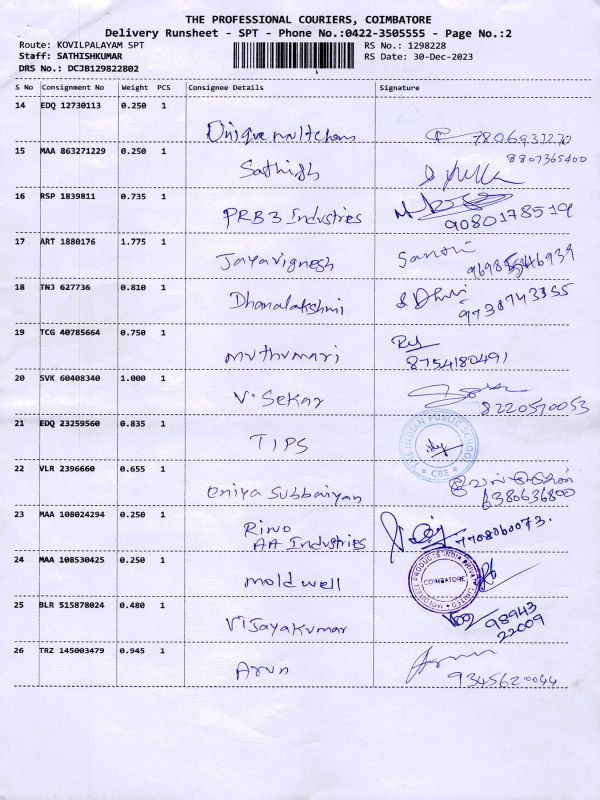 THE PROFESSIONAL COURIERS, COIMBATORE
Delivery Runsheet - SPT - Phone No.:0422-3505555 - Page No.:2
Route: KOVILPALAYAM SPT RS No.: 1298228
Staff: SATHISHKUMAR RS Date: 30-Dec-2023
DRS No.: DCJB129822802
S No Consignment No Weight PCS Consignee Details Signature
14 EDQ 12730113 0.250 1
7806931270
15 MAA 863271229 0.250 1 8807365400
Sathish
16 RSP 1839811 0.735 1
PRB3 Industries 9080178519
17 ART 1880176 1.775 1
Jayavignesh
18 TNJ 627736 0.810 1
Dhanalakshmi 9738743355
19 TCG 40785664 0.750 1
muthumari 8754180491
20 SVK 60408340 1.000 1
V. Sekar 8220570053
21 EDQ 23259560 0.835 1
TIPS THE INDIAN PUBLIC SCHOOL CBE
22 VLR 2396660 0.655 1
eniya Subbaiyan 6380636800
23 MAA 108024294 0.250 1
Rino 7708060073.
AA Industries
24 MAA 108530425 0.250 1
moldwell MOLDWELL PRODUCTS INDIA PRIVATE LIMITED COIMBATORE
25 BLR 515878024 0.480 1
Vijayakumar 98943
22009
26 TRZ 145003479 0.945 1
Arun 9345620044